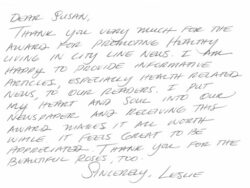 DEAR SUSAN,
THANK YOU VERY MUCH FOR THE
AWARD FOR PROMOTING HEALTHY
LIVING IN CITY LINE NEWS. I AM
HAPPY TO PROVIDE INFORMATIVE
ARTICLES, ESPECIALLY HEALTH RELATED
NEWS, TO OUR READERS. I PUT
MY HEART AND SOUL INTO OUR
NEWSPAPER AND RECEIVING THIS
AWARD MAKES IT ALL WORTH
WHILE. IT FEELS GREAT TO BE
APPRECIATED. THANK YOU FOR THE
BEAUTIFUL ROSES, TOO.
SINCERELY, LESLIE